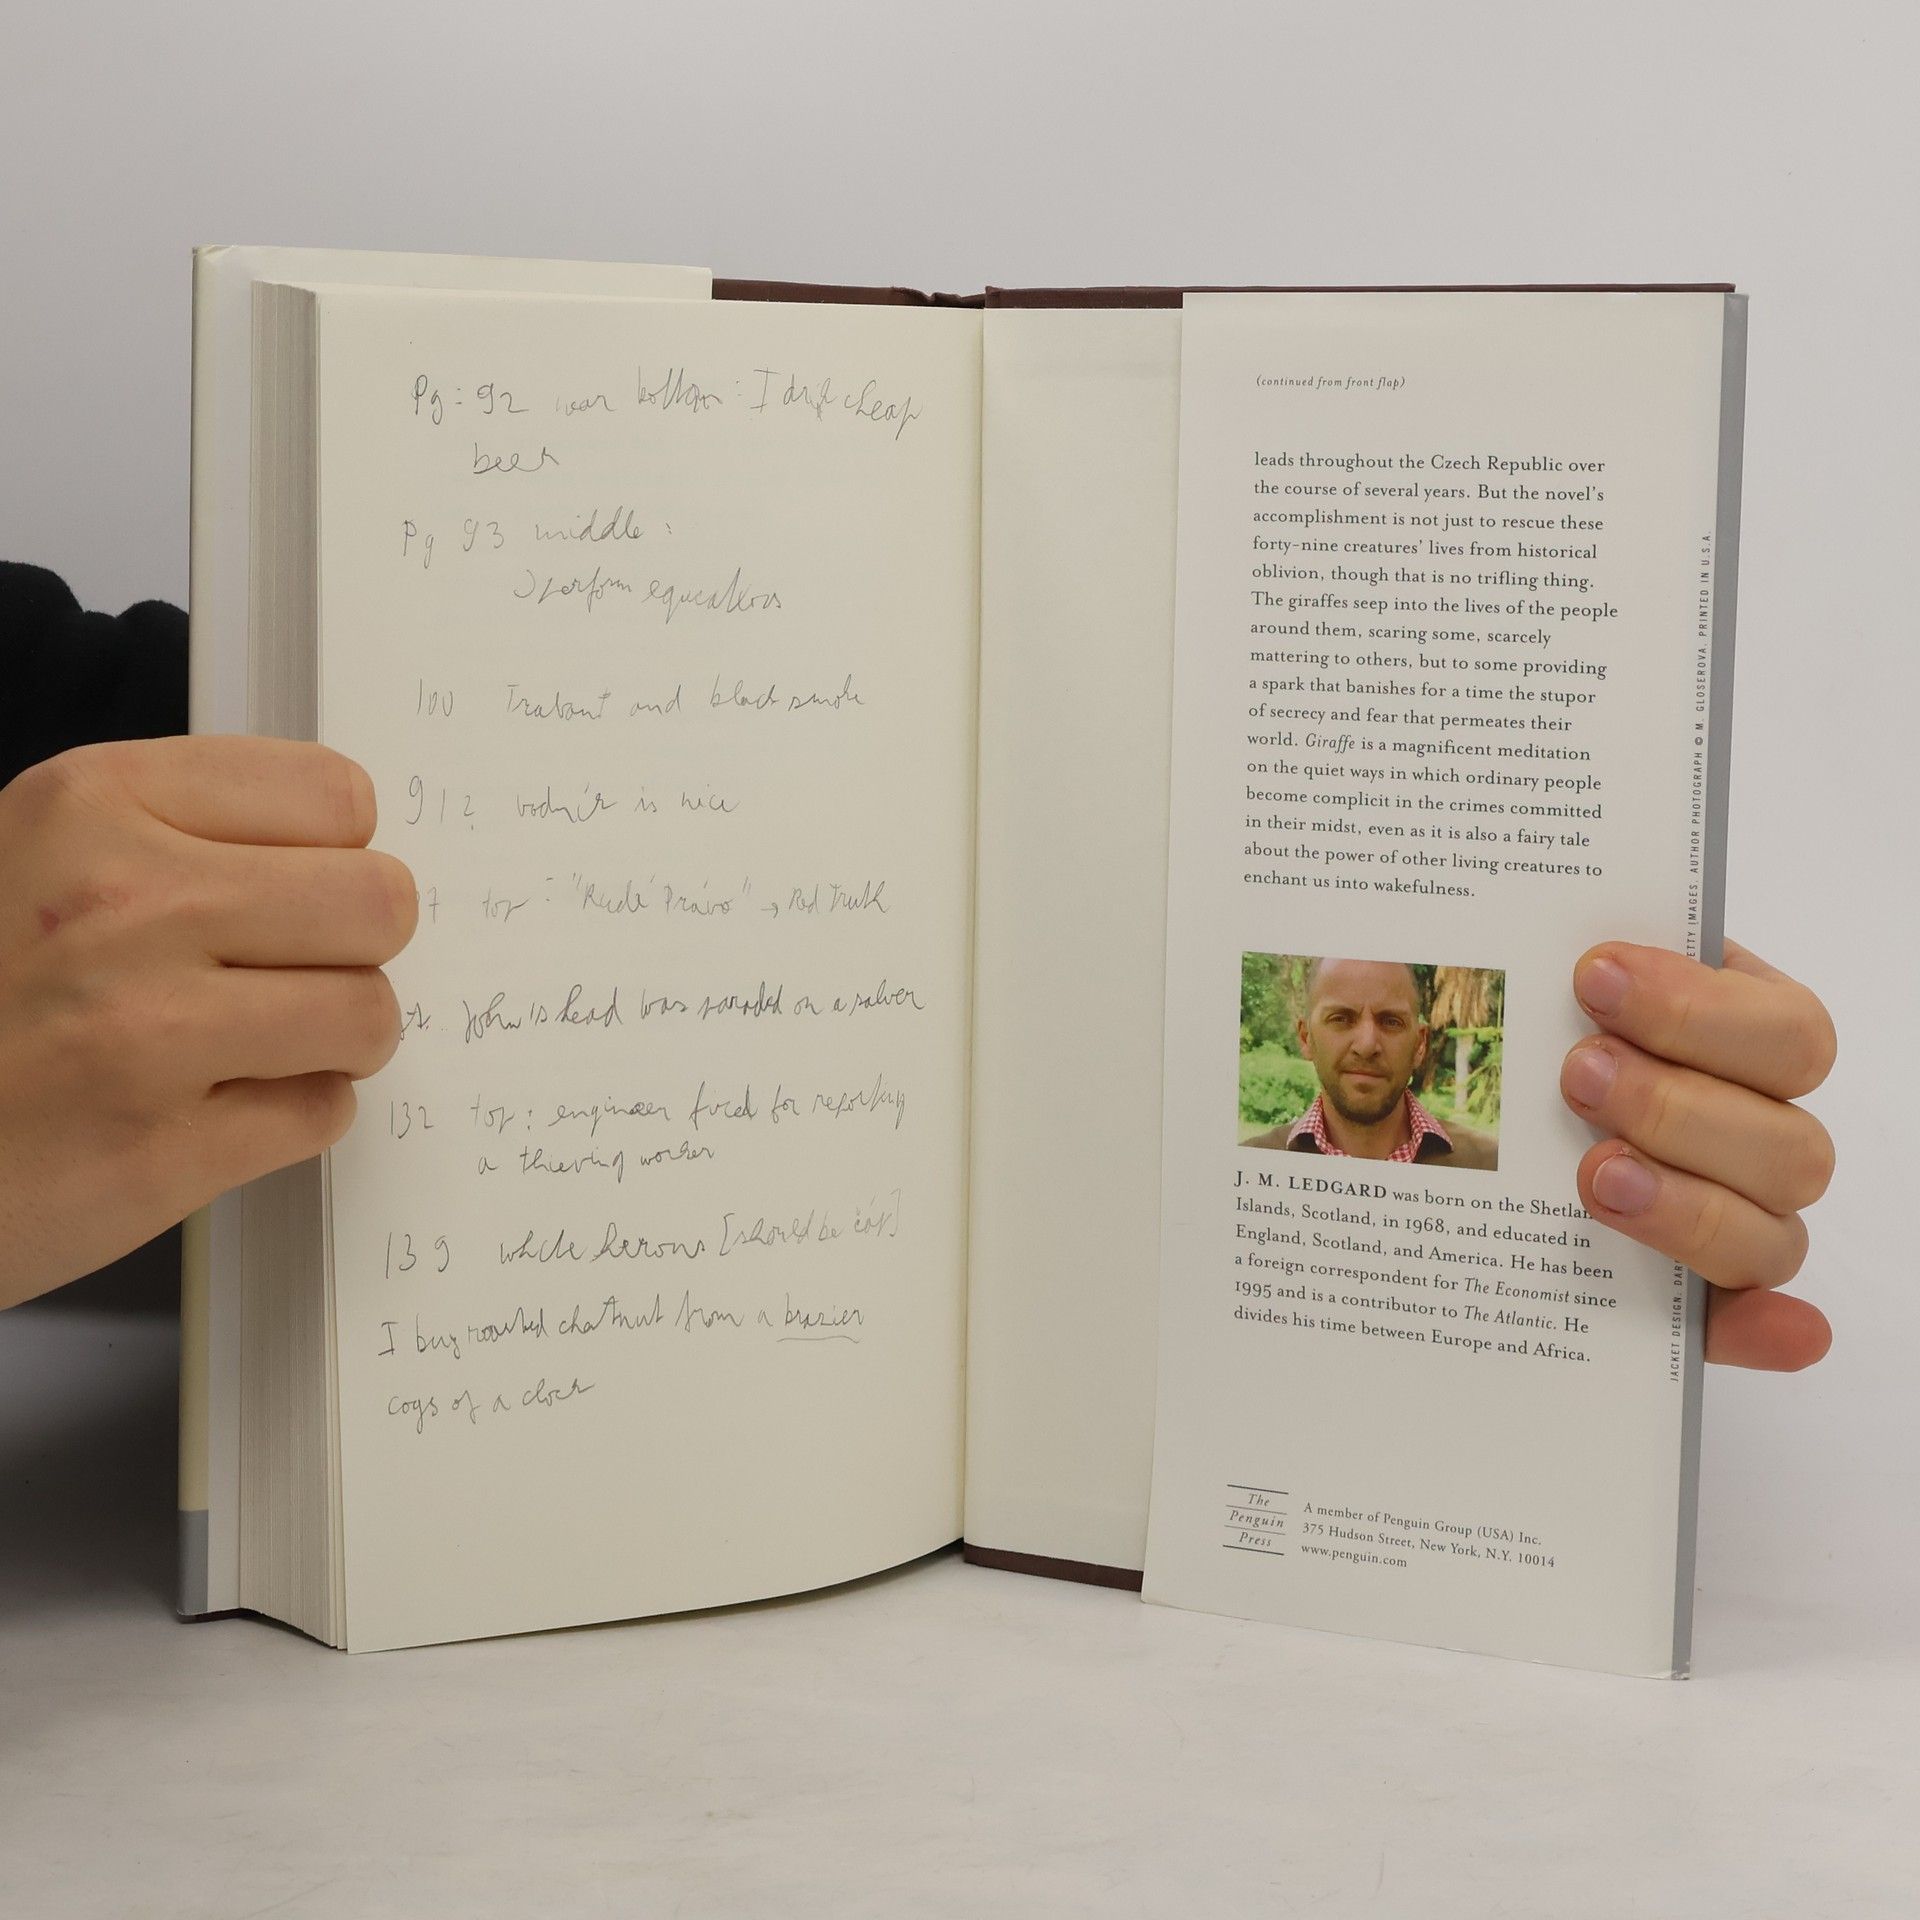 Pg: 92 near bottom: I drink cheap
beer
Pg 93 middle:
perform equations
100 Trabant and black smoke
91? vodník is nice
7 top: "Rudé Právo" → Red Truth
St. John's head was paraded on a salver
132 top: engineer fired for reporting
a thieving worker
139 white herons [should be čáp]
I buy roasted chestnut from a brazier
cogs of a clock
(continued from front flap)
leads throughout the Czech Republic over
the course of several years. But the novel's
accomplishment is not just to rescue these
forty-nine creatures' lives from historical
oblivion, though that is no trifling thing.
The giraffes seep into the lives of the people
around them, scaring some, scarcely
mattering to others, but to some providing
a spark that banishes for a time the stupor
of secrecy and fear that permeates their
world. Giraffe is a magnificent meditation
on the quiet ways in which ordinary people
become complicit in the crimes committed
in their midst, even as it is also a fairy tale
about the power of other living creatures to
enchant us into wakefulness.
J. M. LEDGARD was born on the Shetlan
Islands, Scotland, in 1968, and educated in
England, Scotland, and America. He has been
a foreign correspondent for The Economist since
1995 and is a contributor to The Atlantic. He
divides his time between Europe and Africa.
The
Penguin
Press
A member of Penguin Group (USA) Inc.
375 Hudson Street, New York, N.Y. 10014
www.penguin.com
JACKET DESIGN: DAR ETTY IMAGES. AUTHOR PHOTOGRAPH © M. GLOSEROVA. PRINTED IN U.S.A.